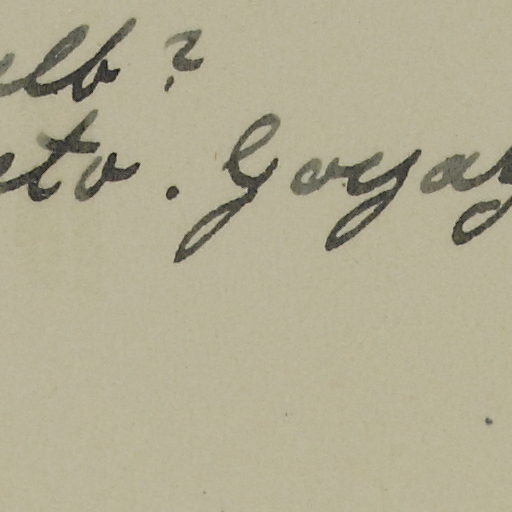 elb?
eto. Goyaz